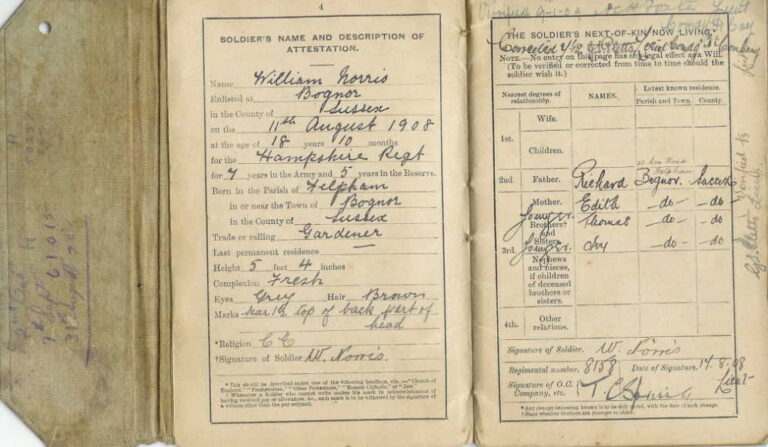 4
SOLDIER'S NAME AND DESCRIPTION OF
ATTESTATION.
Name William Norris
Enlisted at Bognor
in the County of Sussex
on the 11th August 1908
at the age of 18 years 10 months
for the Hampshire Regt
for 7 years in the Army and 5 years in the Reserve.
Born in the Parish of Felpham
in or near the Town of Bognor
in the County of Sussex
Trade or calling Gardener
Last permanent residence
Height 5 feet 4 inches
Complexion Fresh
Eyes Grey Hair Brown
Marks Scar 1½ top of back part of
head
*Religion C E
†Signature of Soldier W. Norris.
* This should be described under one of the following headings, viz.:—"Church of
England," "Presbyterian," "Other Protestants," "Roman Catholic," or "Jew."
† Whenever a Soldier who cannot write makes his mark in acknowledgment of
having received pay or allowances, &c., such mark is to be witnessed by the signature of
a witness other than the pay serjeant.
THE SOLDIER'S NEXT-OF-KIN NOW LIVING.
NOTE.—No entry on this page has any legal effect as a Will.
(To be verified or corrected from time to time should the
soldier wish it.)
Nearest degrees of relationship. NAMES. Latest known residence.
Parish and Town. County.
1st. Wife.
Children.
2nd Father. Richard Bognor. Sussex
Mother. Edith -do- -do
Younger Brothers† Thomas -do- -do
and
3rd. Sisters. Younger Ivy -do- -do
Nephews
and nieces,
if children
of deceased
brothers or
sisters.
4th. Other
relations.
Signature of Soldier. W. Norris
Regimental number. 8158 Date of Signature. 14.8.08
Signature of O.C.
Company, etc.
* Any change becoming known is to be duly noted, with the date of such change.
† State whether brothers are younger or elder.